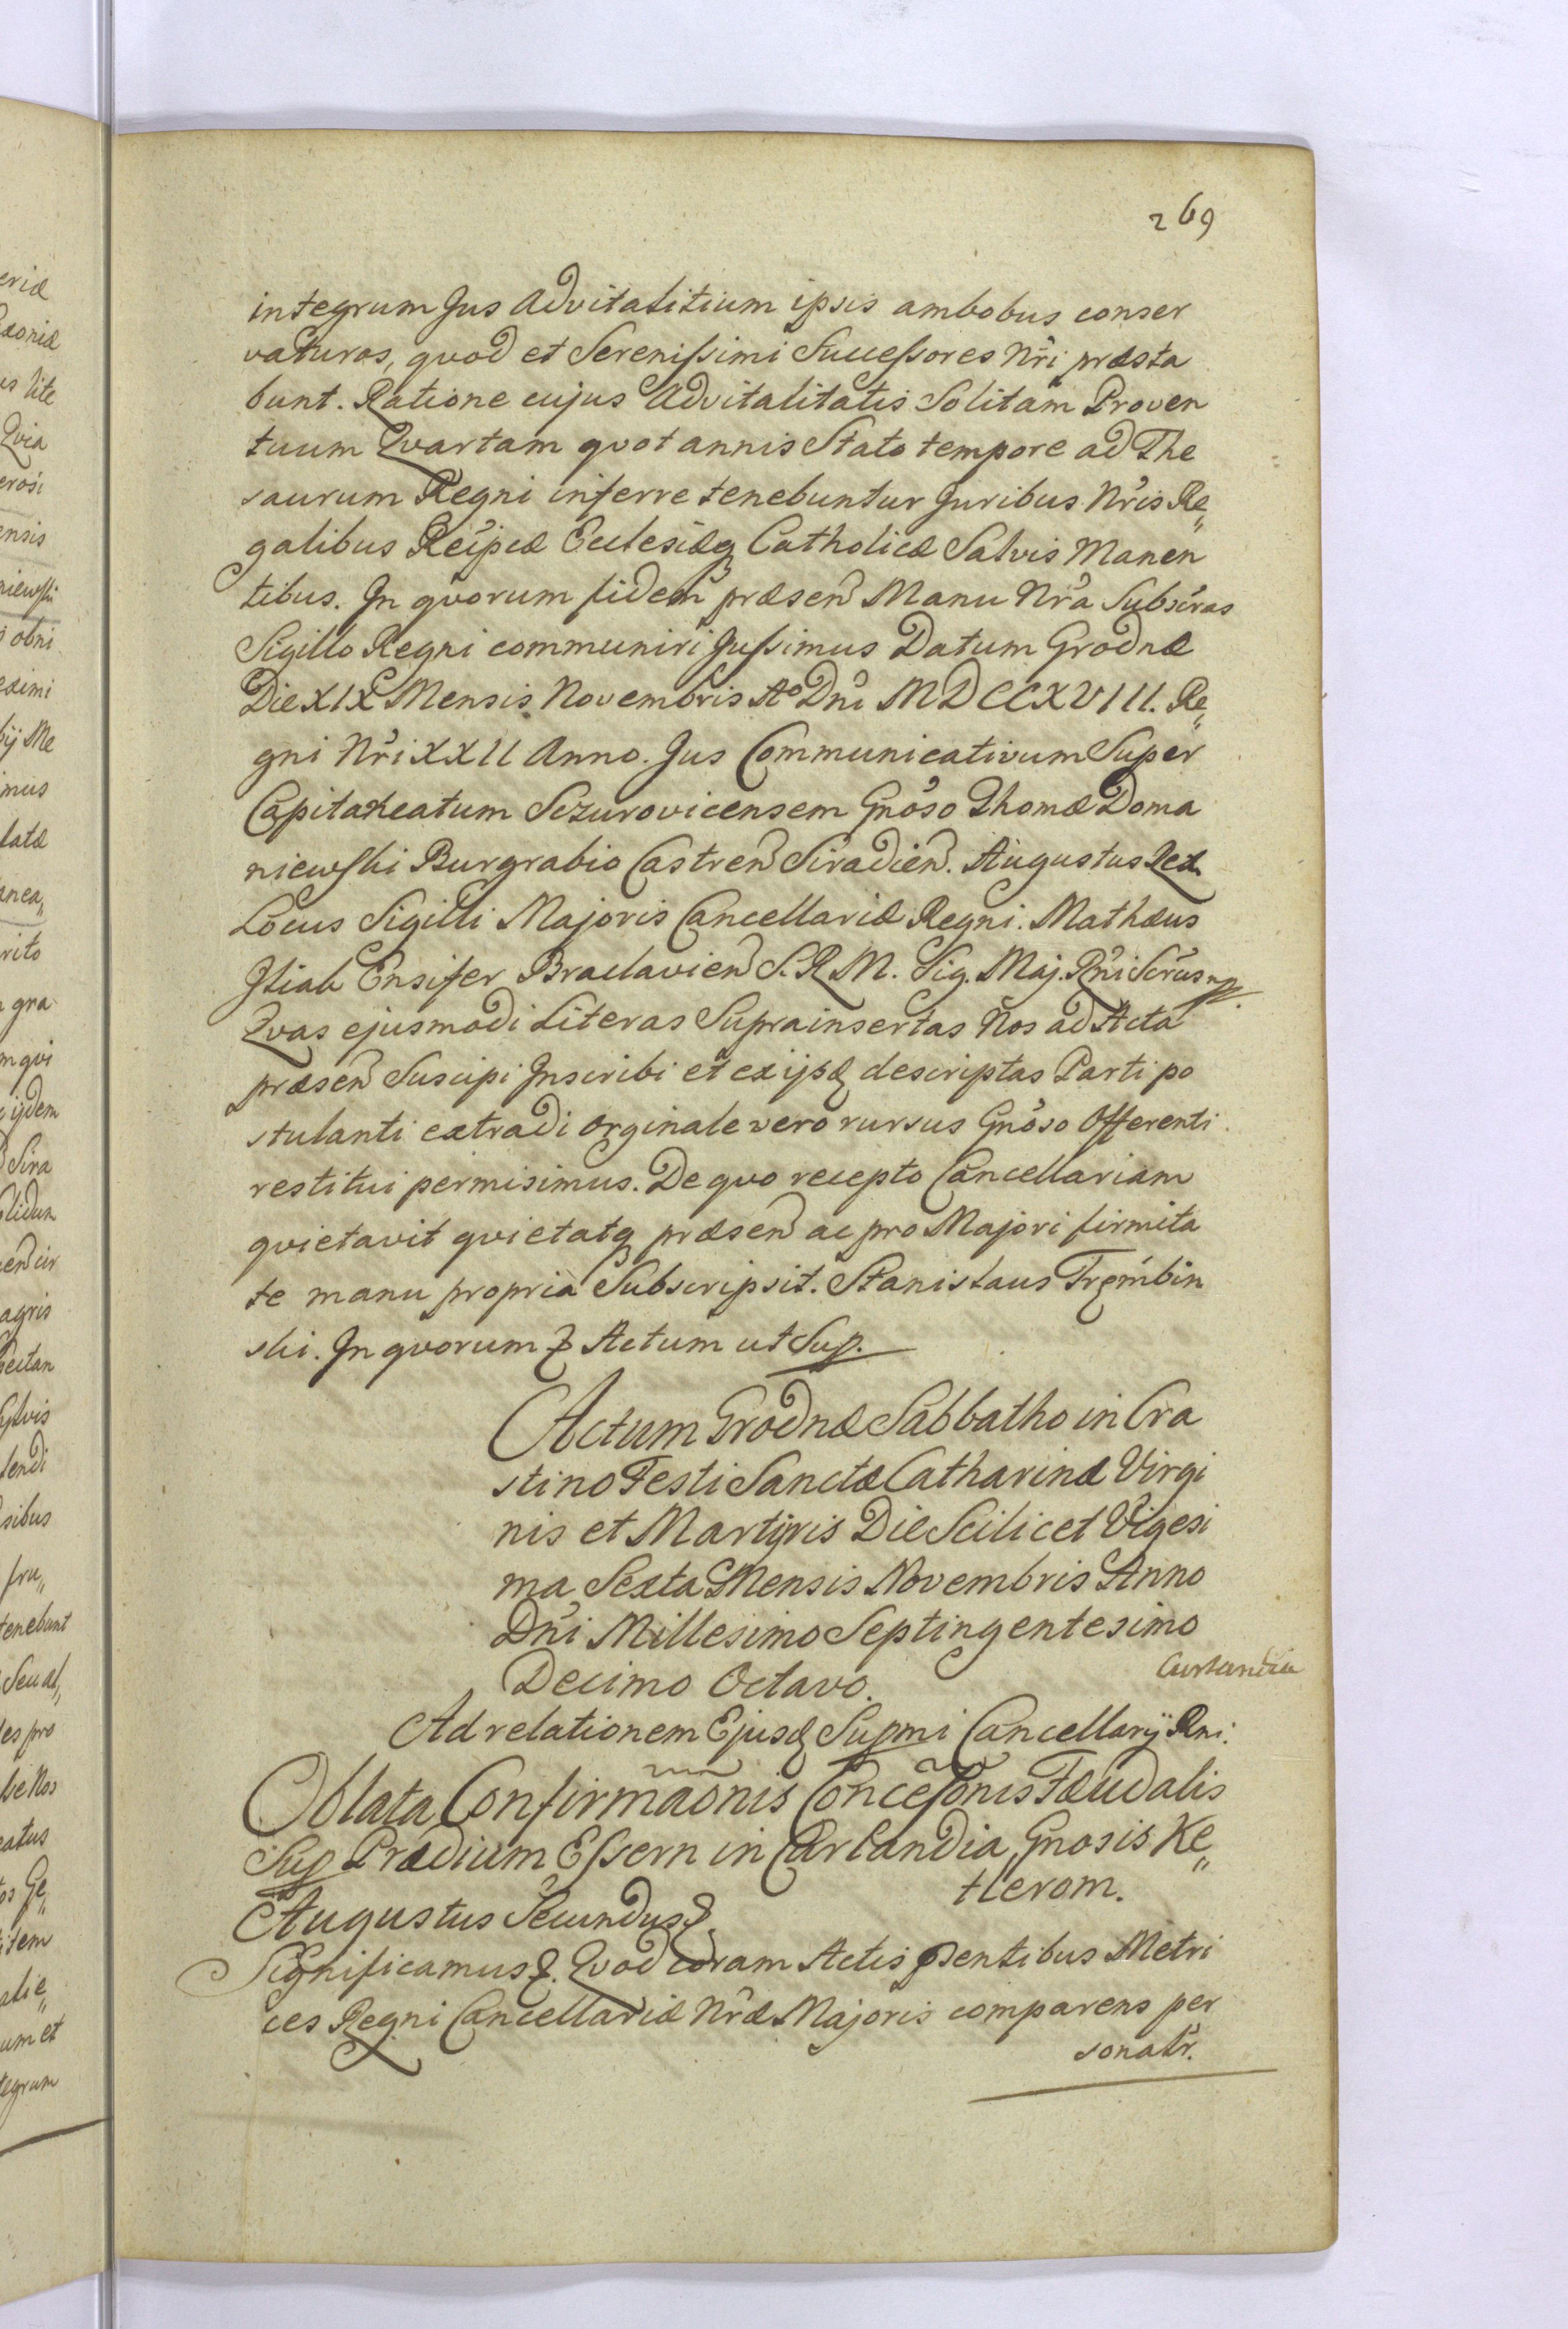 269
integrum Jus Advitalitium ipsis ambobus conser
vaturos, quod et Serenissimi Successores Nři præsta
bunt. Ratione cujus Advitalitatis Solitam Proven
tuum Qvartam qvot annis Stato tempore ad The
saurum Regni inferre tenebuntur Juribus Nřis Re„
galibus Reipcæ Ecclesiæq Catholicæ Salvis Manen
tibus. In qvorum fidem præsen Manu Nřa Subscras
Sigillo Regni communiri Jussimus Datum Grodnæ
Die XIX Mensis Novembris Aº Dni MDCCXVIII. Re„
gni Nři XXII Anno. Jus Communicativum Super
Capitaneatum Sczurovicensem Gnoso Thomæ Doma
niewski Burgrabio Castren Siradien. Augustus Rex
Locus Sigilli Majoris Cancellariæ Regni. Mathæus
Jliak Ensifer Braclavien S.R.M. Sig. Maj. Rni Scrus mp.
Qvas ejusmodi Literas Suprainsertas Nos ad Acta
præsen Suscipi Inscribi et ex ijsd descriptas Parti po
stulanti extradi orginale vero rursus Gnoso Offerenti
restitui permisimus. De qvo recepto Cancellariam
qvietavit qvietatq præsen ac pro Majori firmita
te manu propria Subscripsit. Stanislaus Trembin
ski. In qvorum & Actum ut Sup.
Actum Grodnæ Sabbatho in Cra
stino Festi Sanctæ Catharinæ Virgi
nis et Martyris Die Scilicet Vigesi
ma Sexta Mensis Novembris Anno
Dni Millesimo Septingentesimo
Decimo Octavo.
Curlandia
Ad relationem Ejusd Supmi Cancellarij Rni.
Oblata Confirmaonis Conceßonis Fæudalis
Sup Prædium Essern in Curlandia Gnosis Ke„
tlerom.
Augustus Secundus &.
Significamus &. Qvod coram Actis pſentibus Metri
ces Regni Cancellariæ Nřæ Majoris comparens per
sonatr.